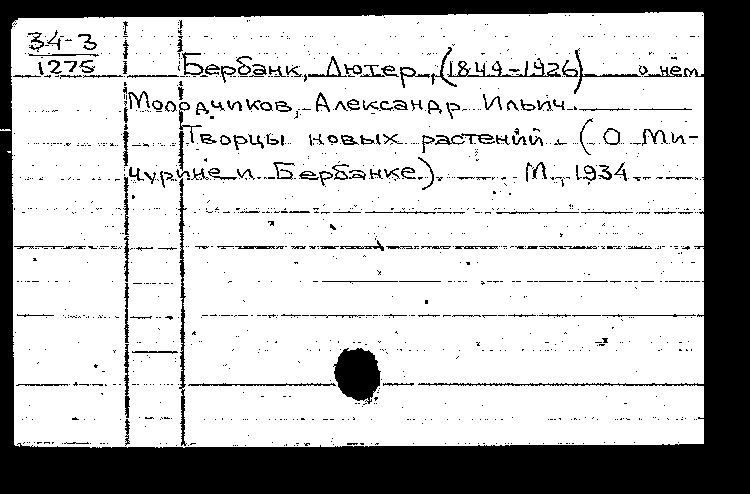 34-3
1275
Бербанк, Лютер, (1849-1926) о нём
Молодчиков, Александр Ильич.
Творцы новых растений. (О Ми-
чурине и Бербанке). М., 1934.